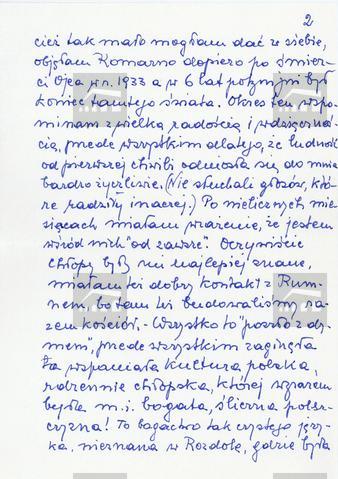 2
cieś tak mało mogłam dać ze siebie,
objęłam Komarno dopiero po śmier-
ci Ojca w r. 1933 a w 6 lat potym był
koniec tamtego świata. Okres ten wspo-
minam z wielką radością i wdzięczno-
cią, przede wszystkim dlatego, że ludność
od pierwszej chwili odniosła się do mnie
bardzo życzliwie. (Nie słuchali głosów, któ-
re radziły inaczej.) Po nielicznych mie-
siącach miałam wrażenie, że jestem
wśród nich "od zawsze". Oczywiście
Chłopy byli mi najlepiej znane,
miałam też dobry kontakt z Rum-
nem, bo tam też budowaliśmy ra-
zem kościół. - Wszystko to "poszło z dy-
mem", przede wszystkim zaginęła
ta wspaniała kultura polska,
rdzennie chłopska, której wyrazem
była m.i. bogata, śliczna polsz-
czyzna! To bogactwo tak czystego języ-
ka, nieznana w Rozdole, gdzie była